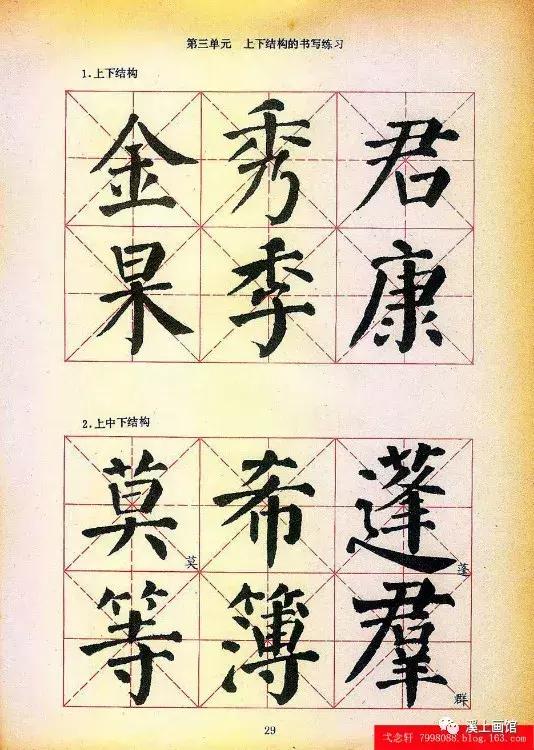 第三单元 上下结构的书写练习
1.上下结构
金 秀 君
果 季 康
2.上中下结构
莫 希 蓬
莫 蓬
等 簿 羣
群
29
溪上画馆
弋念轩 7998088.blog.163.com